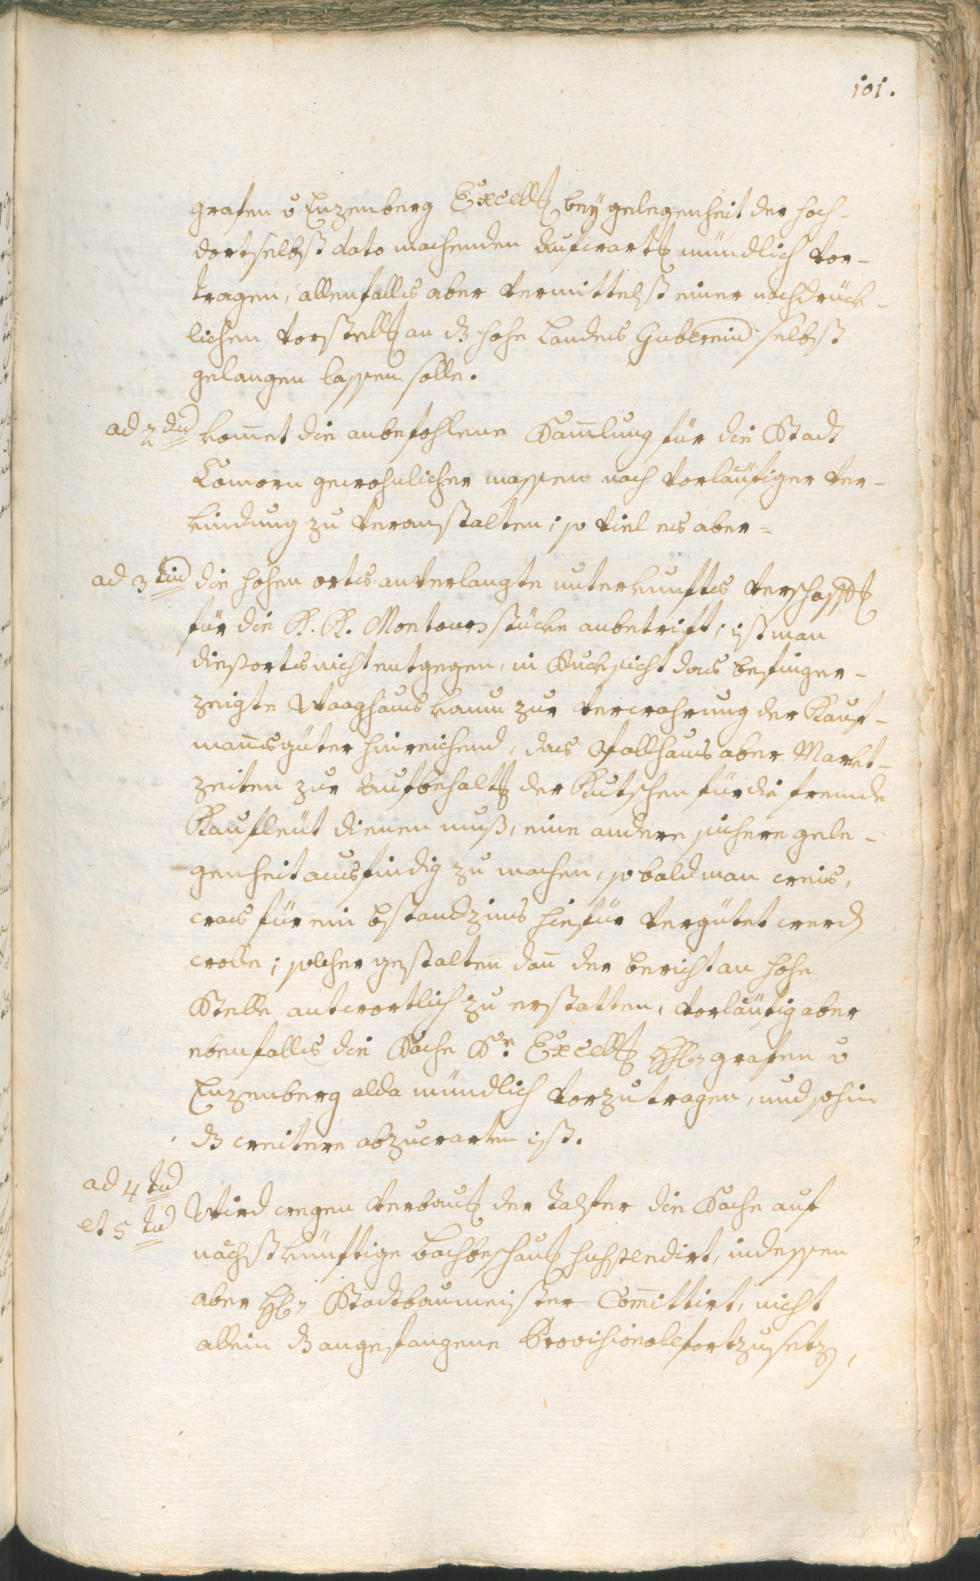 101.
grafen v Enzenberg Excellz bey gelegenheit der hoch-
dortselbst dato machenden Aufwartg mündlich vor-
tragen, allenfalls aber vermittelst einer nachdrück-
lichen vorstellg an dz hohe Landes Gubernium selbst
gelangen lassen solle.
ad 2dum kom̅et die anbefohlene Sam̅lung für die Stadt
Comorn gewohnlicher massen nach vorläufiger ver-
kündung zu veranstalten; so viel es aber =
ad 3tium die hohen orts anverlangte unterkunfts verschaffg
für die K. K. Montours stücke anbetrift; ist man
diessorts nicht entgegen, in Ruck sicht das befinger-
zeigte Waaghaus kaum zur verwahrung der Kauf-
man̅sgüter hinreichend, das Ballhaus aber Markt-
zeiten zur Aufbehaltg der Kutschen für die fremde
Kaufleüt dienen muß, eine andere sichere gele-
genheit ausfindig zu machen, so bald man weis,
was für ein bstandzins hiefür vergütet werdn
wolle; solcher gestalten dan̅ der bericht an hohe
Stelle antwortlich zu erstatten, vorläufig aber
ebenfalls die Sache Sr. Excellz Hhln grafen v
Enzenberg alda mündlich vorzutragen, und sohin
dz weitere abzuwarten ist.
ad 4tum
et 5tum Wird wegen verbaug der Talfer die Sache auf
nächstkünftige bachbeschaug suspendirt, indessen
aber Hln Stadtbaumeister Com̅ittirt, nicht
allein dz angefangene Provisionale fortzusetzn,